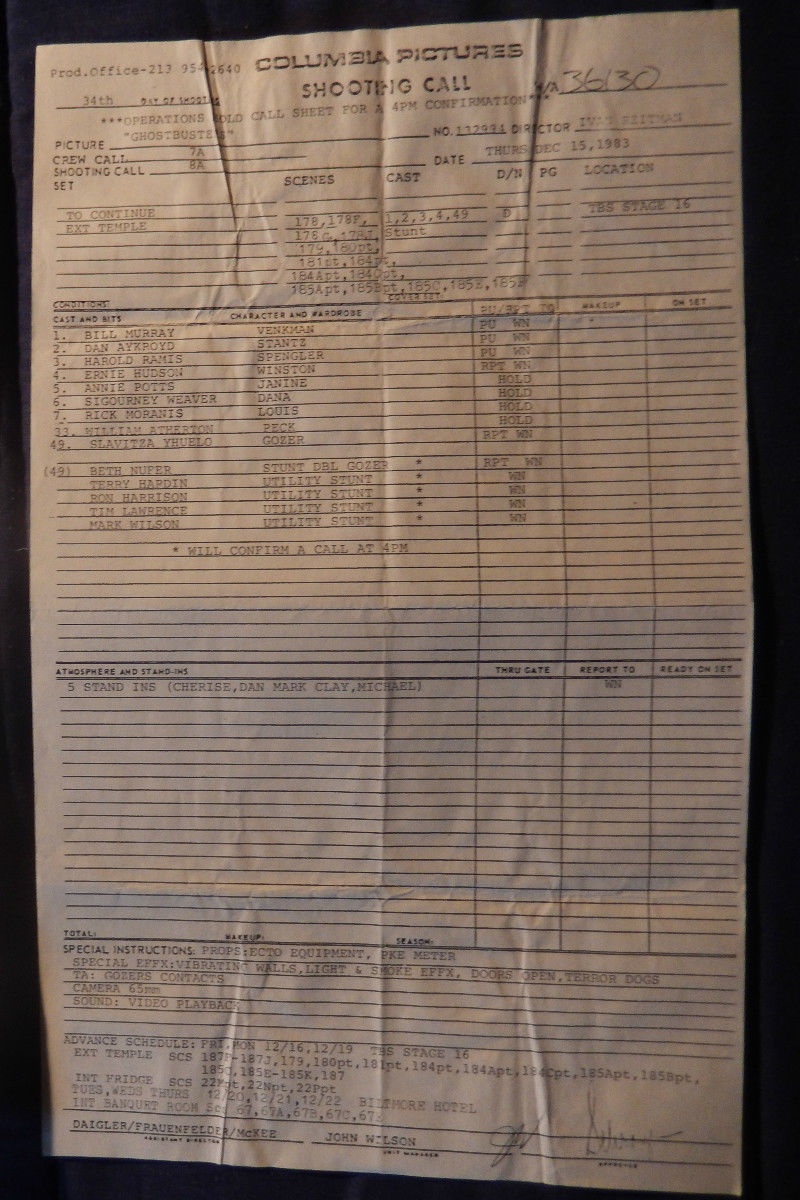 Prod.Office-213 954-2640 COLUMBIA PICTURES
SHOOTING CALL 36130
34th DAY OF SHOOTING
***OPERATIONS HOLD CALL SHEET FOR A 4PM CONFIRMATION***
PICTURE "GHOSTBUSTERS" NO. 132994 DIRECTOR IVAN REITMAN
CREW CALL 7A DATE THURS DEC 15,1983
SHOOTING CALL 8A
SET SCENES CAST D/N PG LOCATION
TO CONTINUE
EXT TEMPLE 178,178F, 1,2,3,4,49 D TBS STAGE 16
178G,178J, Stunt
179,180pt,
181pt,184pt,
184Apt,184Cpt,
185Apt,185Bpt,185C,185E,185F
CONDITIONS: COVER SET:
CAST AND BITS CHARACTER AND WARDROBE PU/RPT TO MAKEUP ON SET
1. BILL MURRAY VENKMAN PU WN
2. DAN AYKROYD STANTZ PU WN
3. HAROLD RAMIS SPENGLER PU WN
4. ERNIE HUDSON WINSTON RPT WN
5. ANNIE POTTS JANINE HOLD
6. SIGOURNEY WEAVER DANA HOLD
7. RICK MORANIS LOUIS HOLD
33. WILLIAM ATHERTON PECK HOLD
49. SLAVITZA YHUELO GOZER RPT WN
(49) BETH NUFER STUNT DBL GOZER * RPT WN
TERRY HARDIN UTILITY STUNT * WN
RON HARRISON UTILITY STUNT * WN
TIM LAWRENCE UTILITY STUNT * WN
MARK WILSON UTILITY STUNT * WN
* WILL CONFIRM A CALL AT 4PM
ATMOSPHERE AND STAND-INS THRU GATE REPORT TO READY ON SET
5 STAND INS (CHERISE,DAN MARK CLAY,MICHAEL) WN
TOTAL: MAKEUP: SEASON:
SPECIAL INSTRUCTIONS: PROPS:ECTO EQUIPMENT, PKE METER
SPECIAL EFFX:VIBRATING WALLS,LIGHT & SMOKE EFFX, DOORS OPEN,TERROR DOGS
TA: GOZERS CONTACTS
CAMERA 65mm
SOUND: VIDEO PLAYBACK
ADVANCE SCHEDULE: FRI,MON 12/16,12/19 TBS STAGE 16
EXT TEMPLE SCS 187F-187J,179,180pt,181pt,184pt,184Apt,184Cpt,185Apt,185Bpt,
185C,185E-185K,187
INT FRIDGE SCS 22Mpt,22Npt,22Ppt
TUES,WEDS THURS 12/20,12/21,12/22 BILTMORE HOTEL
INT BANQUET ROOM Scs 67,67A,67B,67C,67E
DAIGLER/FRAUENFELDER/McKEE JOHN WILSON
ASSISTANT DIRECTOR UNIT MANAGER APPROVED